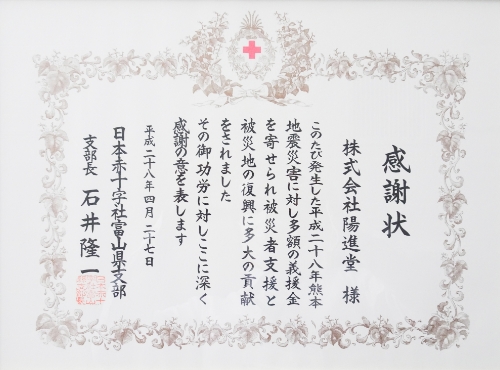 感謝状
株式会社陽進堂 様
このたび発生した平成二十八年熊本
地震災害に対し多額の義援金
を寄せられ被災者支援と
被災地の復興に多大の貢献
をされました
その御功労に対しここに深く
感謝の意を表します
平成二十八年四月二十七日
日本赤十字社富山県支部
支部長 石井隆一